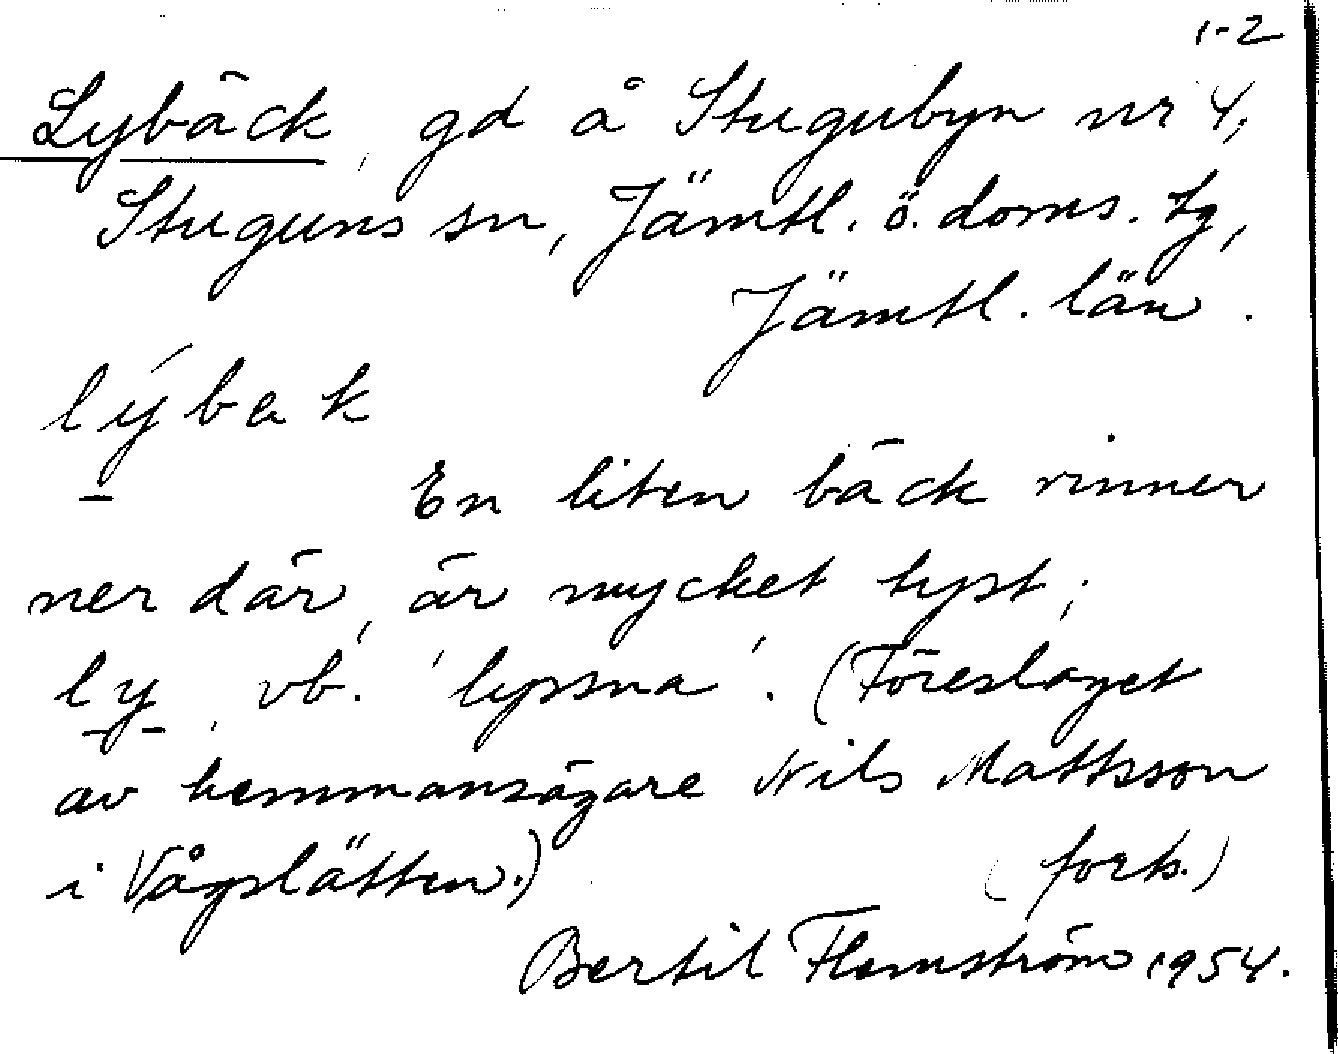 1-2
Lybäck, gd å Stugubyn nr 4,
Stuguns sn, Jämtl. ö. doms. tg,
Jämtl. län.
lýbak
En liten bäck rinner
ner där, är mycket tyst;
ly, vb. 'lyssna'. (Föreslaget
av hemmansägare Nils Mattsson
i Vågslätten.) (forts.)
Bertil Flemström 1954.